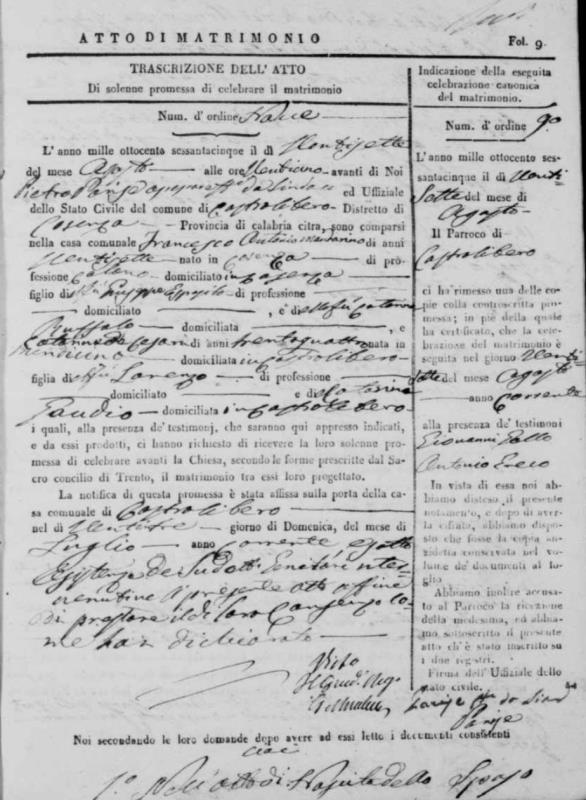 ATTO DI MATRIMONIO
Fol. 9.
TRASCRIZIONE DELL' ATTO
Di solenne promessa di celebrare il matrimonio
Num. d' ordine Nove
L' anno mille ottocento sessantacinque il dì Ventisette
del mese Agosto alle ore avanti di Noi
Pietro ed Uffiziale
dello Stato Civile del comune di Castrolibero Distretto di
Cosenza Provincia di calabria citra, sono comparsi
nella casa comunale Francesco Antonio di anni
Ventisette nato in Cosenza di pro-
fessione domiciliato in Cosenza
figlio di Giuseppe Esposito di professione
domiciliato , e di
Ruffolo domiciliata , e
Caterina de Cesari di anni trentaquattro nata in
Mendicino domiciliata in Castrolibero
figlia di Lorenzo di professione
domiciliato e di Caterina
Gaudio domiciliata in Castrolibero
i quali, alla presenza de' testimonj, che saranno qui appresso indicati,
e da essi prodotti, ci hanno richiesto di ricevere la loro solenne pro-
messa di celebrare avanti la Chiesa, secondo le forme prescritte dal Sa-
cro concilio di Trento, il matrimonio tra essi loro progettato.
La notifica di questa promessa è stata affissa sulla porta della ca-
sa comunale di Castrolibero
nel dì Ventitre giorno di Domenica, del mese di
Luglio anno corrente
de Sudotti Genitori
di prestare il di loro consenzo co-
me han dichiarato
Visto
Noi secondando le loro domande dopo avere ad essi letto i documenti consistenti
cioè
1.° Nell'atto di nascita dello Sposo
Indicazione della eseguita
celebrazione canonica
del matrimonio.
Num. d' ordine 9.
L' anno mille ottocento ses-
santacinque il dì Venti
Sette del mese di
Agosto
Il Parroco di
Castrolibero
ci ha rimesso una delle co-
pie colla controscritta pro-
messa; in piè della quale
ha certificato, che la cele-
brazione del matrimonio è
seguita nel giorno Venti
Sette del mese Agosto
anno corrente
alla presenza de' testimoni
Giovanni
Antonio Greco
In vista di essa noi ab-
biamo disteso il presente
notamento, e dopo di aver-
la cifrata, abbiamo dispo-
sto che fosse la copia an-
zidetta conservata nel vo-
lume de' documenti al fo-
glio
Abbiamo inoltre accusa-
to al Parroco la ricezione
della medesima, ed abbia-
mo sottoscritto il presente
atto ch' è stato inscritto su
i due registri.
Firma dell' Uffiziale dello
stato civile.